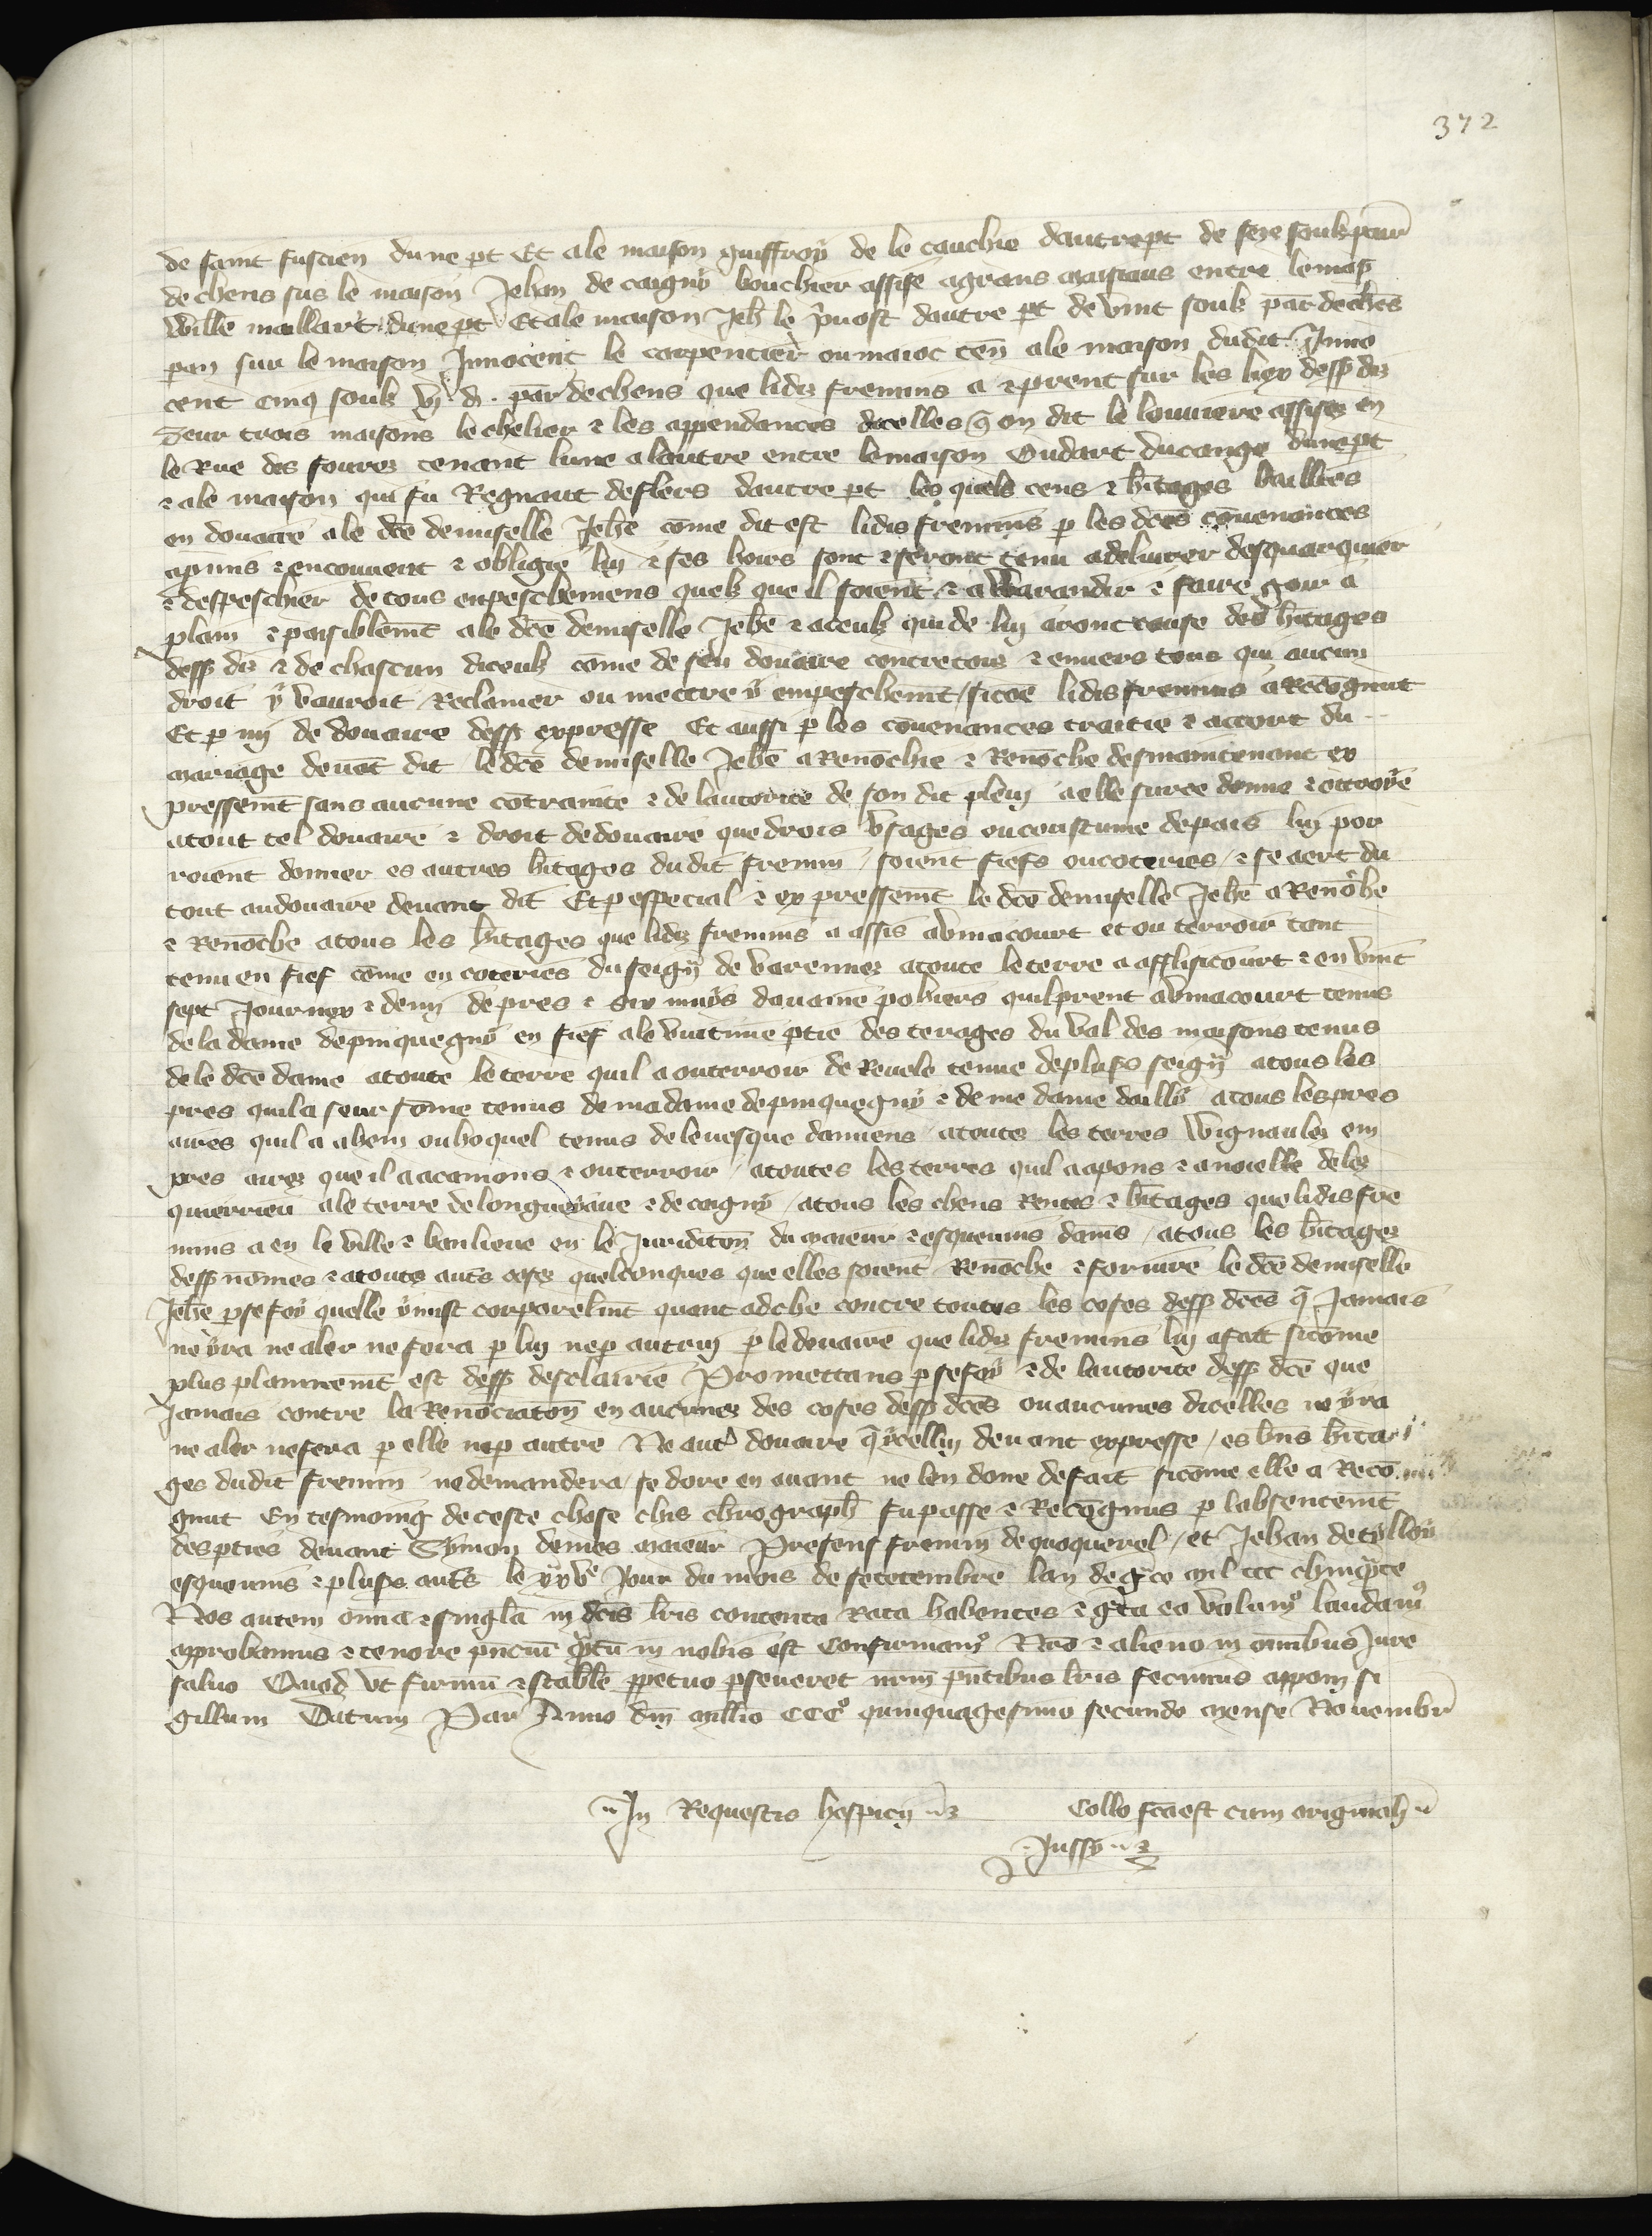 372
de saint fuscien dune pt Et ale maison guiffroy de le cauchie dautrept de seze soulz par
de chens sus le maison Jehan de caigny bouchier assise agrans maisiaus entre lemais
Wille maillart dune pt Et ale maison Jeh le puost dautre pt de vint soulz par de chens
par an sur le maison Innocent le carpentier ou maioc ten ale maison dudit Inno
cent cinq soulz vj d. par dechens que lidis fremins a & prent sur les liex dess dis
Seur trois maisons le chelier & les appendances dicelles q on dit le louuiere assises en
le Rue des fourez tenant lune alautre entre lemaison Oudart ducange dune pt
& ale maison qui fu Regnaut deflers dautre pt les quels cens & hitages bailliees
en douaire ale dce demiselle Jehe come dit est lidis fremins p les dces couenances
apmis & encouuent & obligie luy & ses hoirs sont & seront tenu adeliurer desquarquier
& despeschier de tous enpeschemens quelz que il soient & a Warandir & faire gour a
plain & paisiblemt ale dce demiselle Jehe & aceulz qui de luy aront cause des hitages
dess dis & de chascun diceulz come de sen douaire contre tous & enuers tous qui aucun
droit y vauroit Reclamer ou mettre y empeschemt / sicoe lidis fremins a Recognut
Et p my de douaire dess expresse Et aussi p les couenances traitie & accort du
mariage deuat dit le dce demiselle Jehe a Renochie & Renoche desmaintenant ex
pressemt sans aucune cotrainte & de lautorite de son dit plein a elle suree donne & ottroyee
atout tel douaire & droit dedouaire que drois vsages oucoustume depais luy por
roient donner es autres hitages dudit fremin / soient fiefs oucoteries / & se aert du
tout audouaire deuant dit Et p especial & expressemt le dce demiselle Jehe a Renoche
& Renoche atous les hitages que lidis fremins a assis abmacourt et ou terroir tant
tenu en fief come en coteries du seigr de varennes atoute leterre a afflisicourt & en vint
sept Journex & demi de pres & six muys dauaine pohiers quilprent abmacourt tenus
de la dame depinquegny en fief ale vuitime ptie des terages du val des maisons tenus
de le dce dame atoute leterre quil a outerroir de Reuele tenue deplusrs seigrs atous les
pres quil a seur some tenus de madame depinquegny & de me dame dailly atous lespres
aires quil a aheny ouhoquel tenus de leuesque damiens / atoutes les terres Wignaules em
pres aires que il a acamons & outerroir / atoutes lesterres quil a apons & anoielle deles
quierrieu ale terre de longueyaue & de cagny / atous les chens Rentes & hitages que lidis fre
mins a en le ville & banlieue en le Juridicon du maieur & esqueuins damis / atous les hitages
dess nomes & atoutes auts coses quelconques que elles soient Renoche & foruire le dce demiselle
Jehe p sefoy quelle ymist corporelmt quant adche contre toutes les coses dess dces q Jamais
ne yra ne aler ne fera p luy nep autruy p ledouaire que lidis fremins luy afait sicome
plus plainnemt est dess desclairie Promettans p sefoy & de lautorite dess dce que
Jamais contre la Renonciaton en aucunes des coses dess dces ouaucunes dicelles ne yra
ne aler nefera p elle nep autre Ne autre douaire q ycelluy deuant expresse / es bns hita
ges dudit fremin ne demandera / se dore en auant ne len done defait sicome elle a Reco
gnut En tesmoing deceste chose chis chrograph fu passe & Recognus p labsentemt
despties deuant Symon demes maieur Presens fremin dequoquerel / et Jehan de tylloy
esqueuins & plusrs auts le xxve Jour du mois de setembre lan de gce mil ccc chincqte
Nos autem omnia & singla in dcis lris contenta rata habentes & grata ea volum laudam
approbamus & tenore pncium qtu in nobis est Confirmam Nro & alieno in omnibus Jure
saluo Quod vt firmu & stabile ppetuo pseueret nrm pntibus lris fecimus apponi si
gillum Datum Par Anno dni millio CCCo quinquagesimo secundo mense Nouembr
In Requestis hospicij Collo fca est cum originali
Jussy